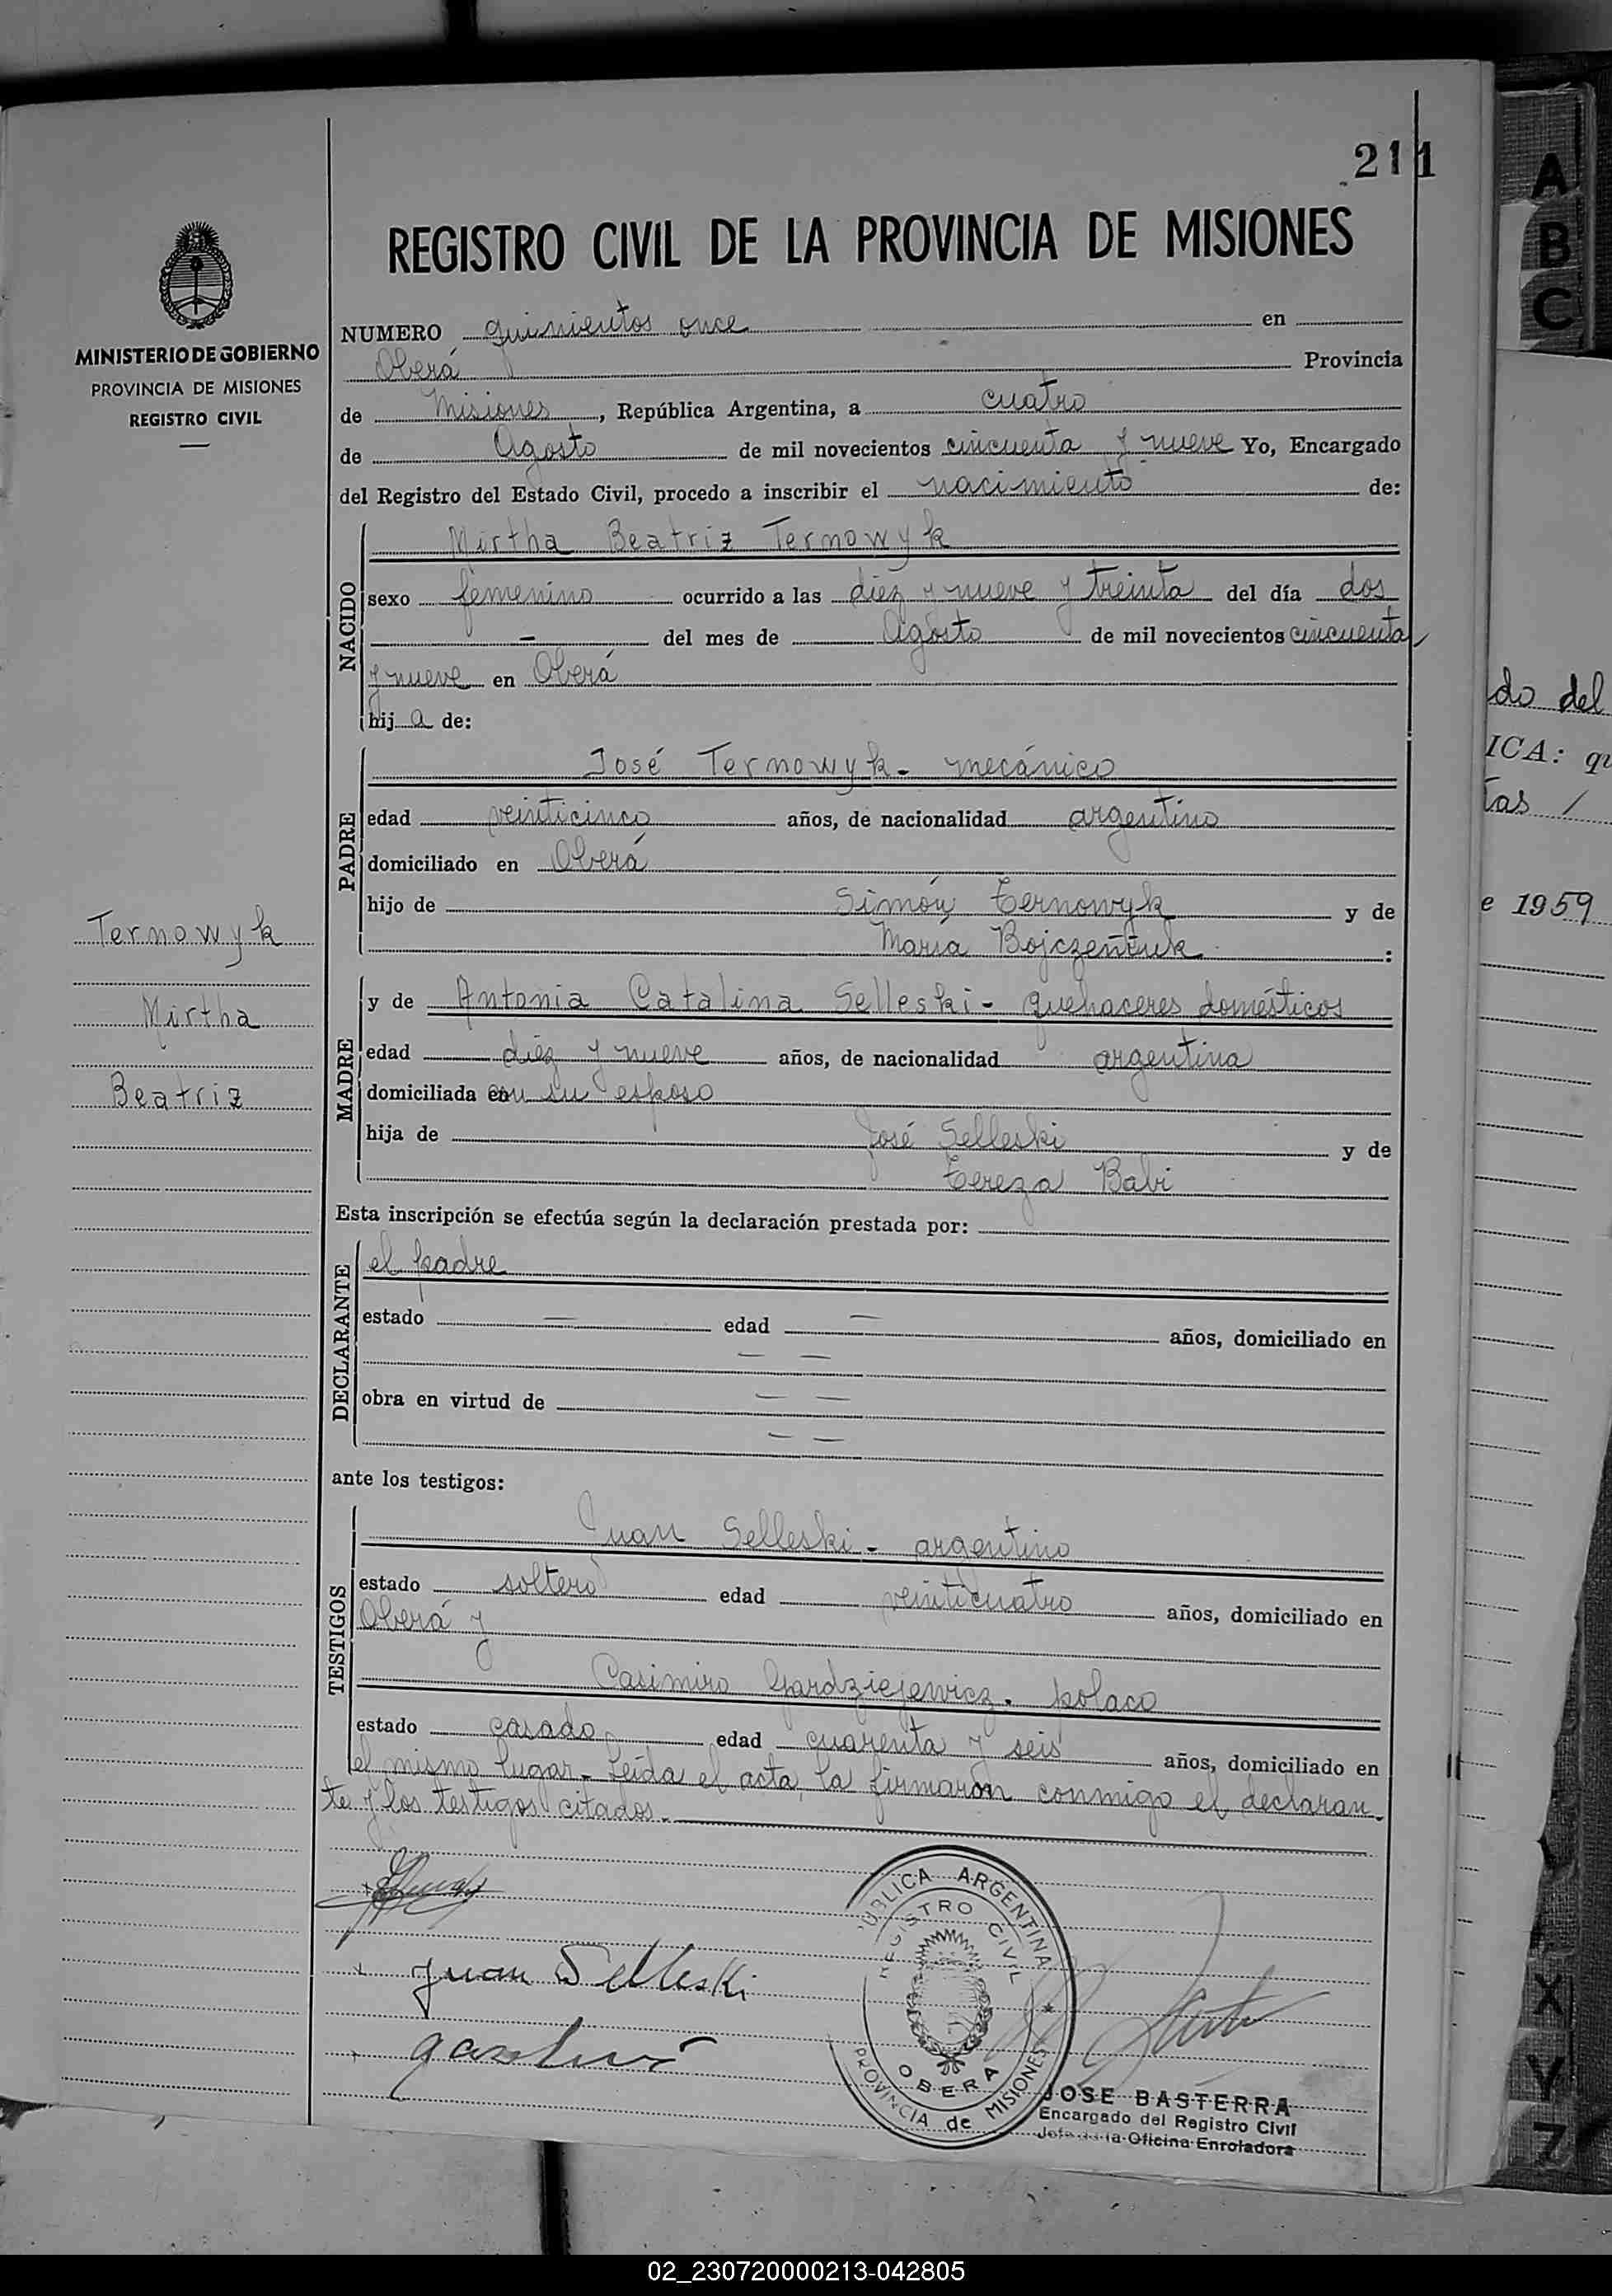 211
REGISTRO CIVIL DE LA PROVINCIA DE MISIONES
MINISTERIO DE GOBIERNO
PROVINCIA DE MISIONES
REGISTRO CIVIL
NUMERO quinientos once en
Oberá Provincia
de Misiones, República Argentina, a cuatro
de Agosto de mil novecientos cincuenta y nueve Yo, Encargado
del Registro del Estado Civil, procedo a inscribir el nacimiento de:
NACIDO
Mirtha Beatriz Ternowyk
sexo femenino ocurrido a las diez y nueve y treinta del día dos
— del mes de Agosto de mil novecientos cincuenta
y nueve en Oberá
hij a de:
PADRE
José Ternowyk - mecánico
edad veinticinco años, de nacionalidad argentino
domiciliado en Oberá
hijo de Simón Ternowyk y de
María Bojczeñtuk :
Ternowyk
Mirtha
Beatriz
MADRE
y de Antonia Catalina Selleski - quehaceres domésticos
edad diez y nueve años, de nacionalidad argentina
domiciliada con su esposo
hija de José Selleski y de
Tereza Babi
Esta inscripción se efectúa según la declaración prestada por:
DECLARANTE
el padre
estado — edad — años, domiciliado en
— —
obra en virtud de — —
— —
ante los testigos:
TESTIGOS
Juan Selleski - argentino
estado soltero edad veinticuatro años, domiciliado en
Oberá y
Casimiro Gardziejewicz - polaco
estado casado edad cuarenta y seis años, domiciliado en
el mismo lugar - Leída el acta, la firmaron conmigo el declaran-
te y los testigos citados.-
Juan Selleski
REPÚBLICA ARGENTINA
REGISTRO CIVIL
OBERA
PROVINCIA de MISIONES
JOSE BASTERRA
Encargado del Registro Civil
Jefe de la Oficina Enroladora
do del
ICA: qu
tas /
e 1959
A
B
C
X
Y
Z
02_230720000213-042805